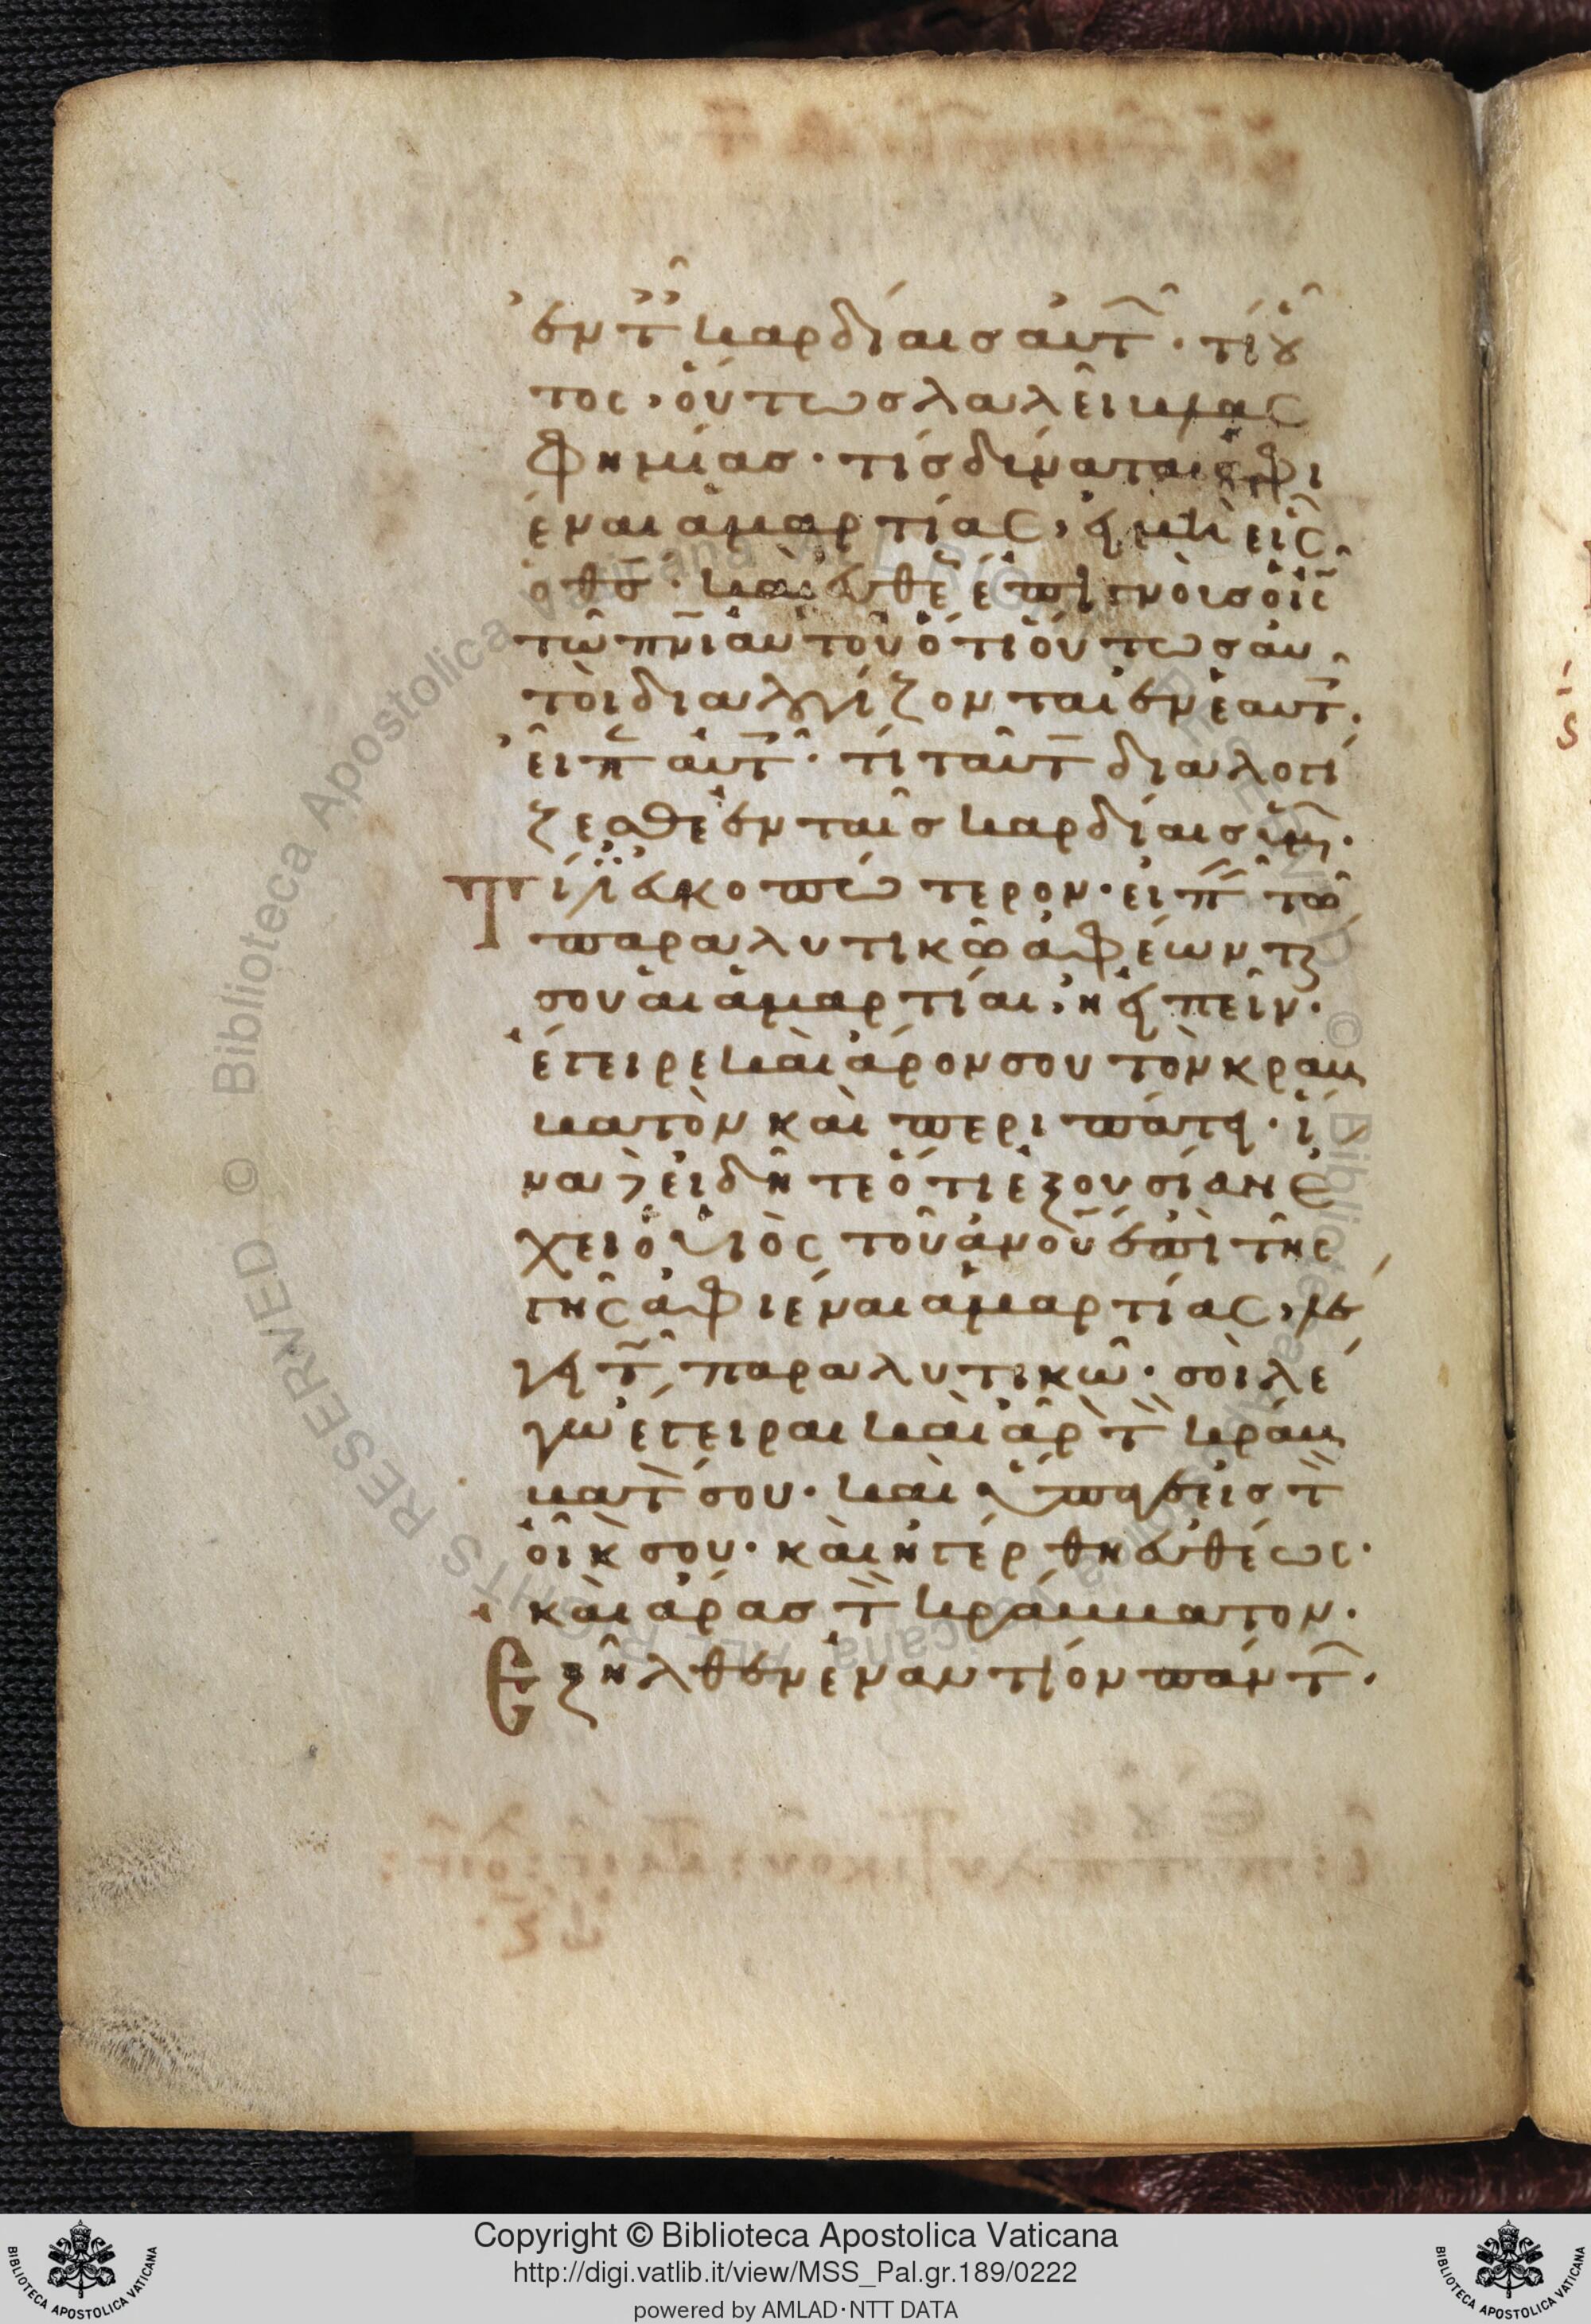 ἐν τ καρδίαις αὐτ · τί οὗ
τος, οὕτως λαλεῖ βλας
φημίας · τίς δύναται ἀφι
έναι ἁμαρτίας, εἰ μὴ εἷς
ὁ θς · καὶ εὐθε ἐπιγνοὺς ὁ ις
τῶ πνι αὐτοῦ ὅτι οὕτως αὐ
τοὶ διαλογίζονται ἐν ἑαυτ ·
εἶπ αὐτ · τί ταῦτ διαλογί
ζεσθε ἐν ταῖς καρδίαις ὑμ ·
Τί ἐστιν εὐκοπώτερον · εἰπ τῶ
παραλυτικῶ ἀφέωνται
σου αἱ ἁμαρτίαι, ἢ εἰπεῖν ·
ἔγειρε καὶ ἆρον σου τὸν κραβ
βατὸν καὶ περιπάτει · ἵ
να δὲ εἰδῆτε ὅτι ἐξουσίαν ἔ
χει ὁ υἱὸς τοῦ ἀνοῦ ἐπὶ τῆς
γῆς ἀφιέναι ἁμαρτίας, λέ
γει τ παραλυτικῶ · σοὶ λέ
γω ἔγειραι καὶ ἆρ τ κράβ
βατ σου · καὶ ὕπαγε εἰς τ
οἶκ σου · καὶ ἠγέρθη εὐθέως ·
καὶ ἄρας τ κράββατον ·
Ἐξῆλθεν ἐναντίον πάντ ·
Copyright © Biblioteca Apostolica Vaticana
http://digi.vatlib.it/view/MSS_Pal.gr.189/0222
powered by AMLAD·NTT DATA
BIBLIOTECA APOSTOLICA VATICANA
BIBLIOTECA APOSTOLICA VATICANA